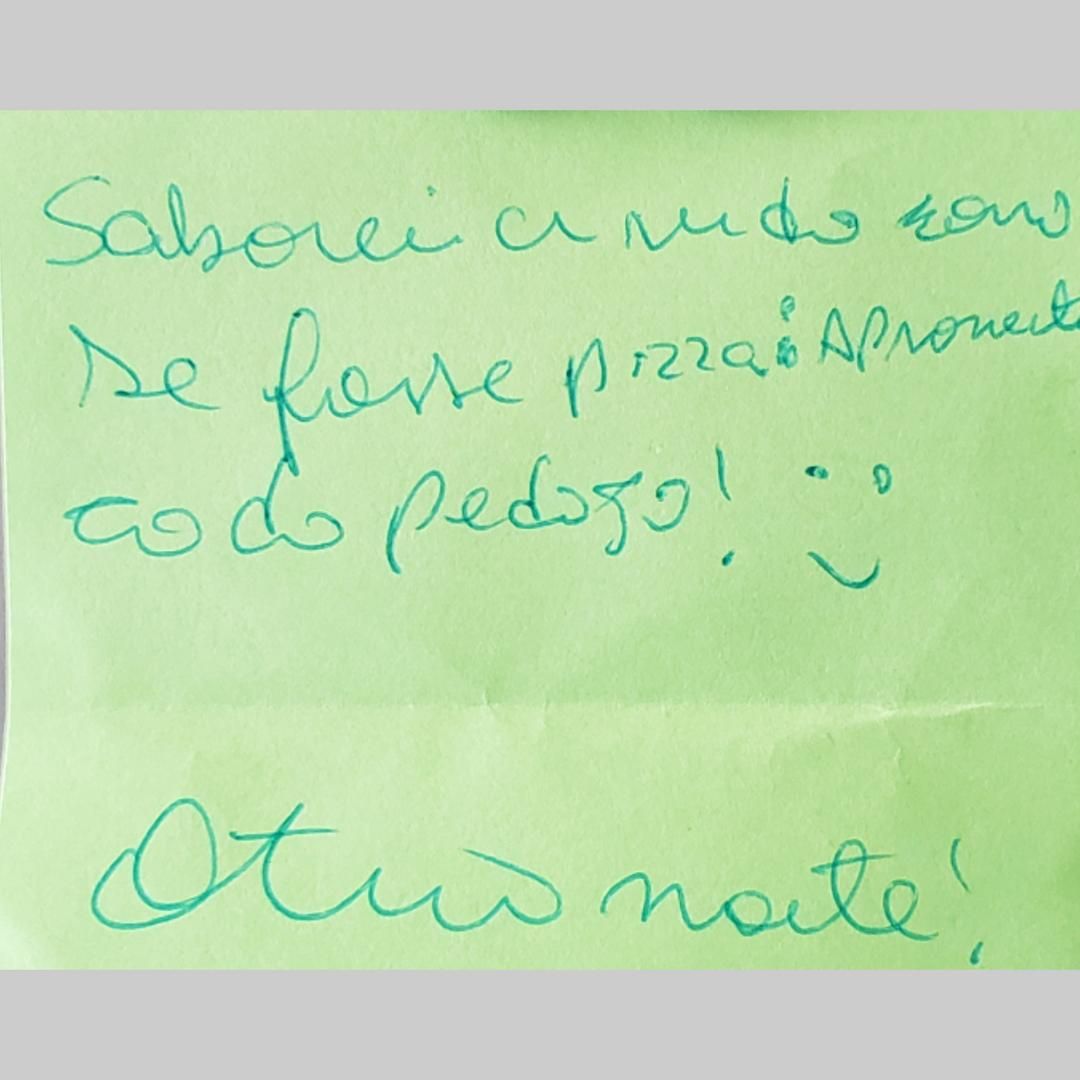 Saborei a vida como
se fosse pizza: Aproveite
cada pedaço! :)
Otima noite!